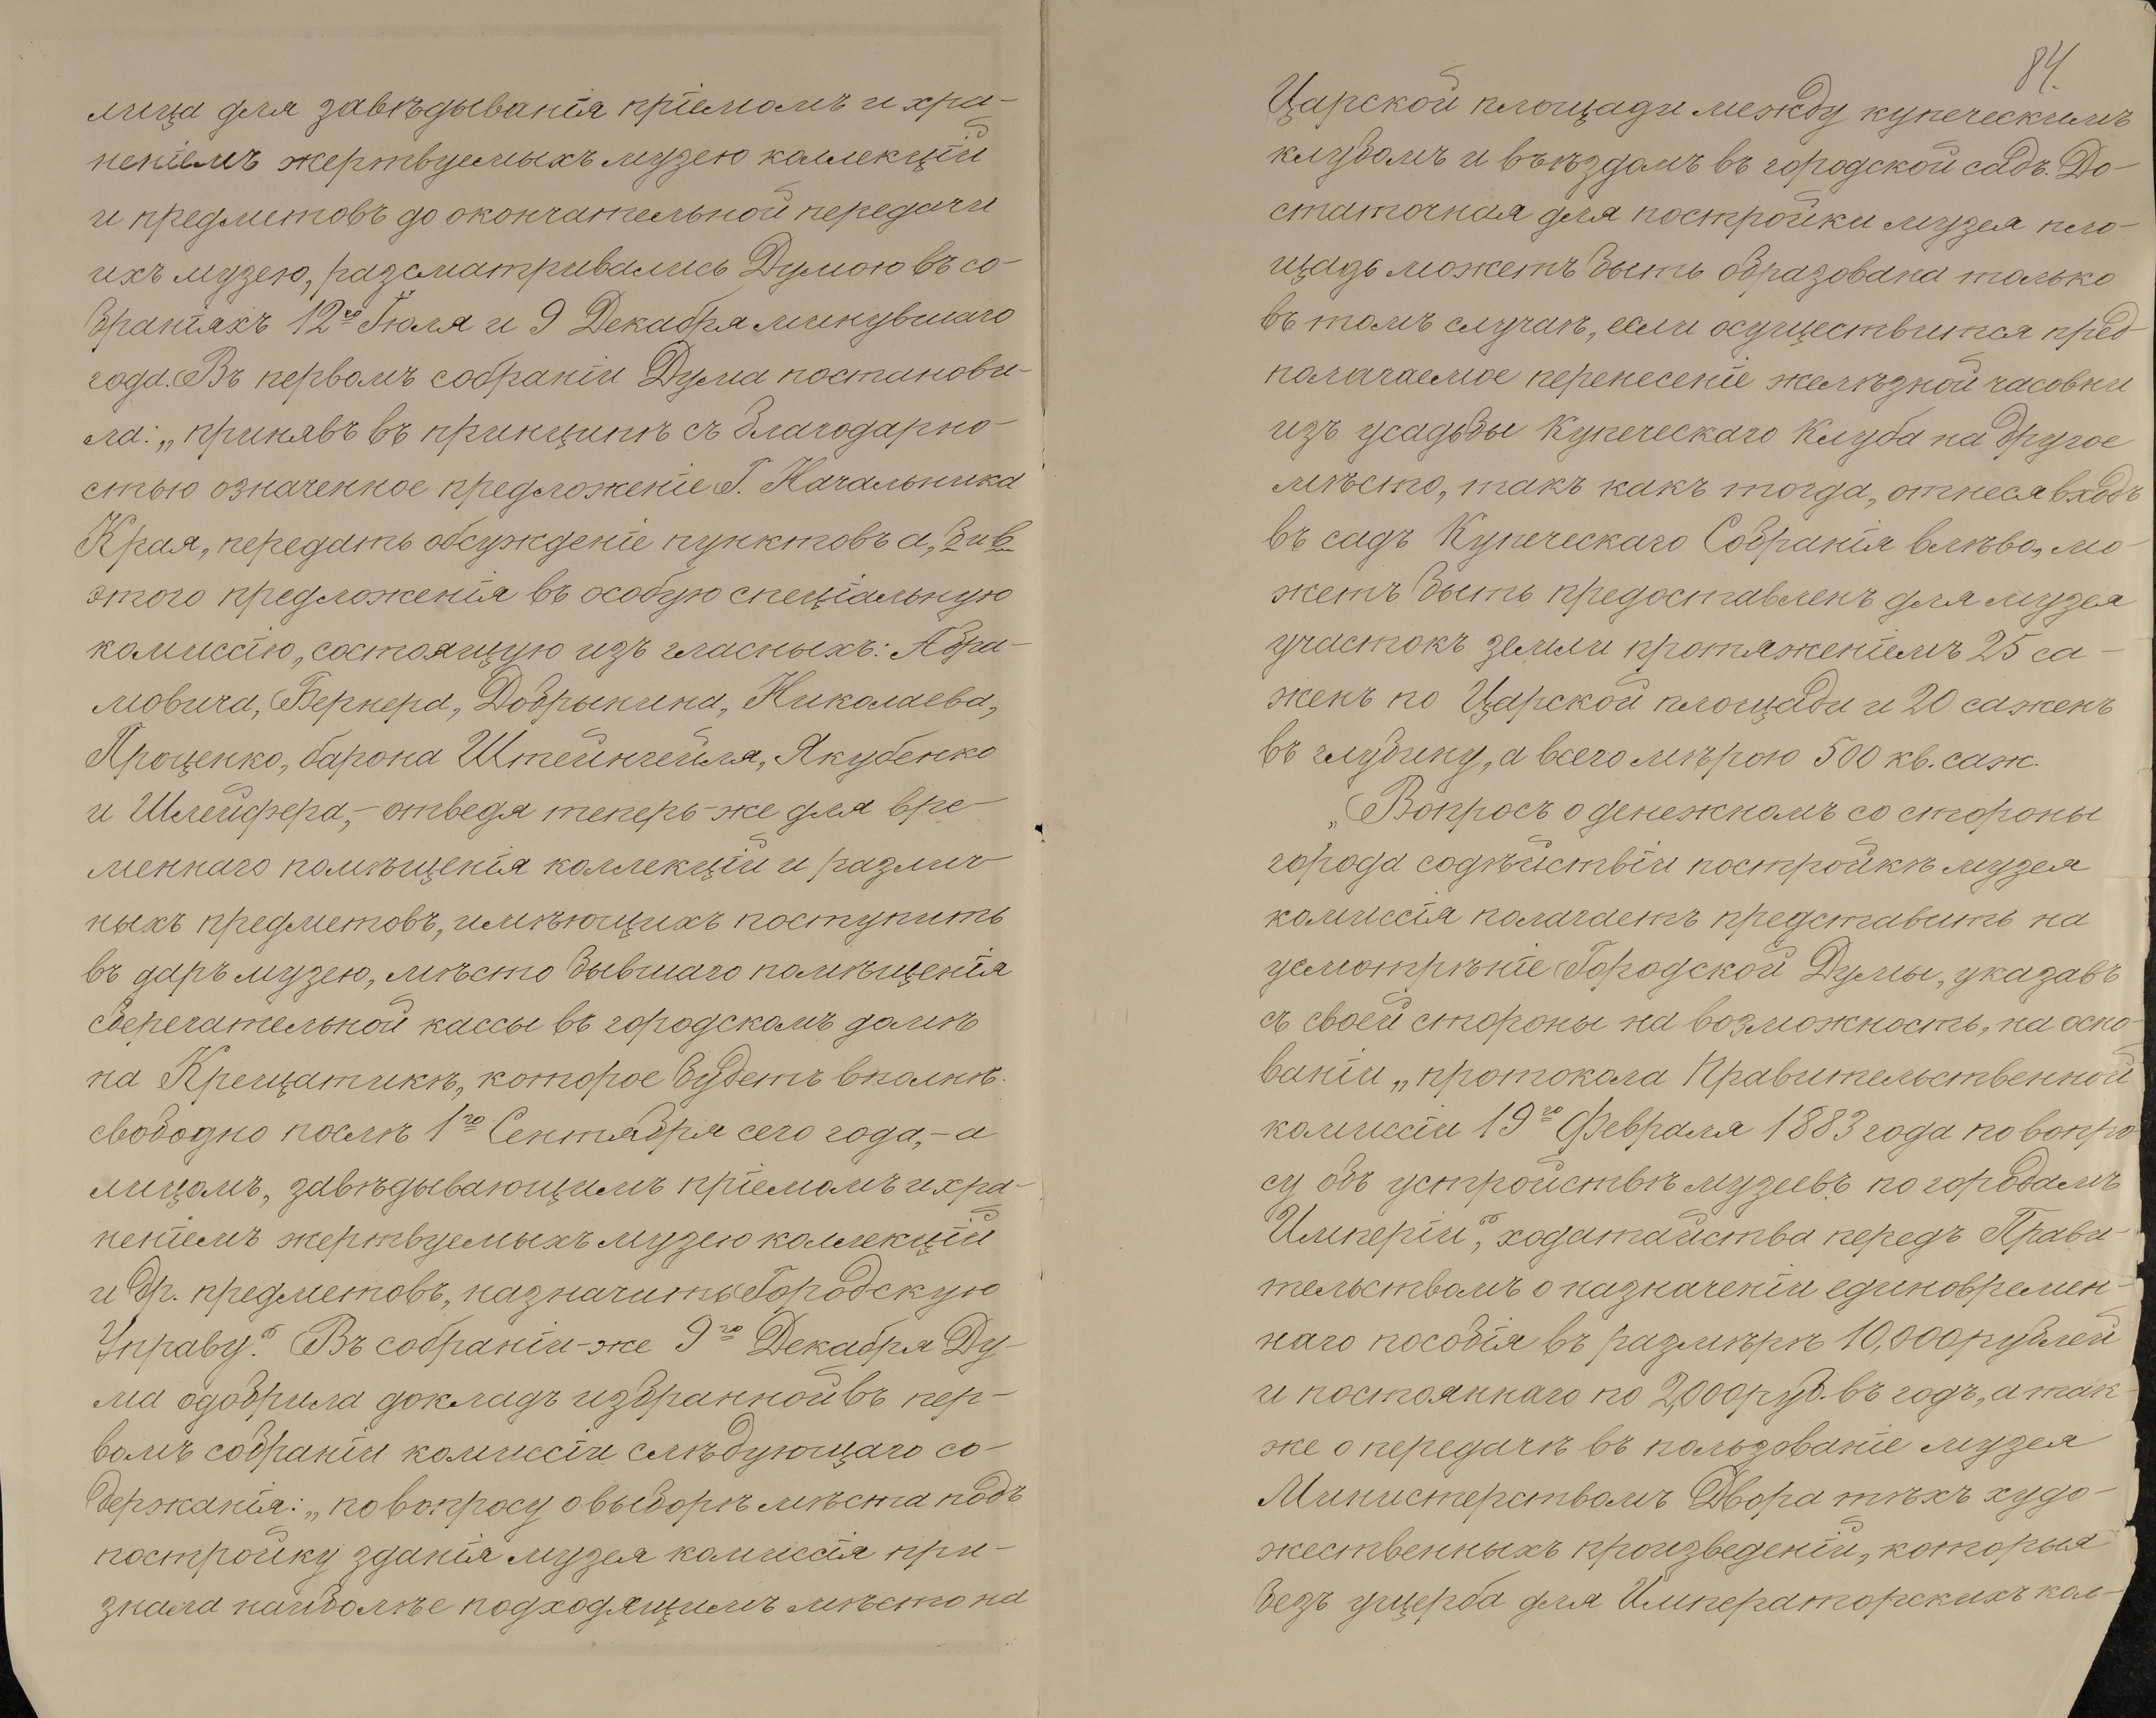 лица для завѣдыванія пріемомъ и хра-
неніемъ жертвуемыхъ музею коллекцій
и предметовъ до окончательной передачи
ихъ музею, разсматривались Думою въ со-
браніяхъ 12го Іюля и 9 Декабря минувшаго
года. Въ первомъ собраніи Дума постанови-
ла: „принявъ въ принципѣ съ благодарно-
стью означенное предложеніе Г. Начальника
Края, передать обсужденіе пунктовъ а, б и в
этого предложенія въ особую спеціальную
комиссію, состоящую изъ гласныхъ: Абра-
мовича, Бернера, Добрынина, Николаева,
Проценко, барона Штейнгейля, Якубенко
и Шлейфера, – отведя теперь-же для вре-
меннаго помѣщенія коллекцій и различ-
ныхъ предметовъ, имѣющихъ поступить
въ даръ музею, мѣсто бывшаго помѣщенія
сберегательной кассы въ городскомъ домѣ
на Крещатикѣ, которое будетъ вполнѣ
свободно послѣ 1го Сентября сего года, – а
лицомъ, завѣдывающимъ пріемомъ и хра-
неніемъ жертвуемыхъ музею коллекцій
и др. предметовъ, назначить Городскую
Управу.“ Въ собраніи-же 9го Декабря Ду-
ма одобрила докладъ избранной въ пер-
вомъ собраніи комиссіи слѣдующаго со-
держанія: „по вопросу о выборѣ мѣста подъ
постройку зданія музея комиссія при-
знала наиболѣе подходящимъ мѣсто на
84.
Царской площади между купеческимъ
клубомъ и въѣздомъ въ городской садъ. До-
статочная для постройки музея пло-
щадь можетъ быть образована только
въ томъ случаѣ, если осуществится пред-
полагаемое перенесеніе желѣзной часовни
изъ усадьбы Купеческаго Клуба на другое
мѣсто, такъ какъ тогда, отнеся входъ
въ садъ Купеческаго Собранія влѣво, мо-
жетъ быть предоставленъ для музея
участокъ земли протяженіемъ 25 са-
женъ по Царской площади и 20 саженъ
въ глубину, а всего мѣрою 500 кв. саж.
„Вопросъ о денежномъ со стороны
города содѣйствіи постройкѣ музея
комиссія полагаетъ представить на
усмотрѣніе Городской Думы, указавъ
съ своей стороны на возможность, на осно-
ваніи „протокола Правительственной
комиссіи 19го Февраля 1883 года по вопро-
су объ устройствѣ музеевъ по городамъ
Имперіи“, ходатайства передъ Прави-
тельствомъ о назначеніи единовремен-
наго пособія въ размѣрѣ 10,000 рублей
и постояннаго по 2,000 руб. въ годъ, а так-
же о передачѣ въ пользованіе музея
Министерствомъ Двора тѣхъ худо-
жественныхъ произведеній, которыя
безъ ущерба для Императорскихъ кол-